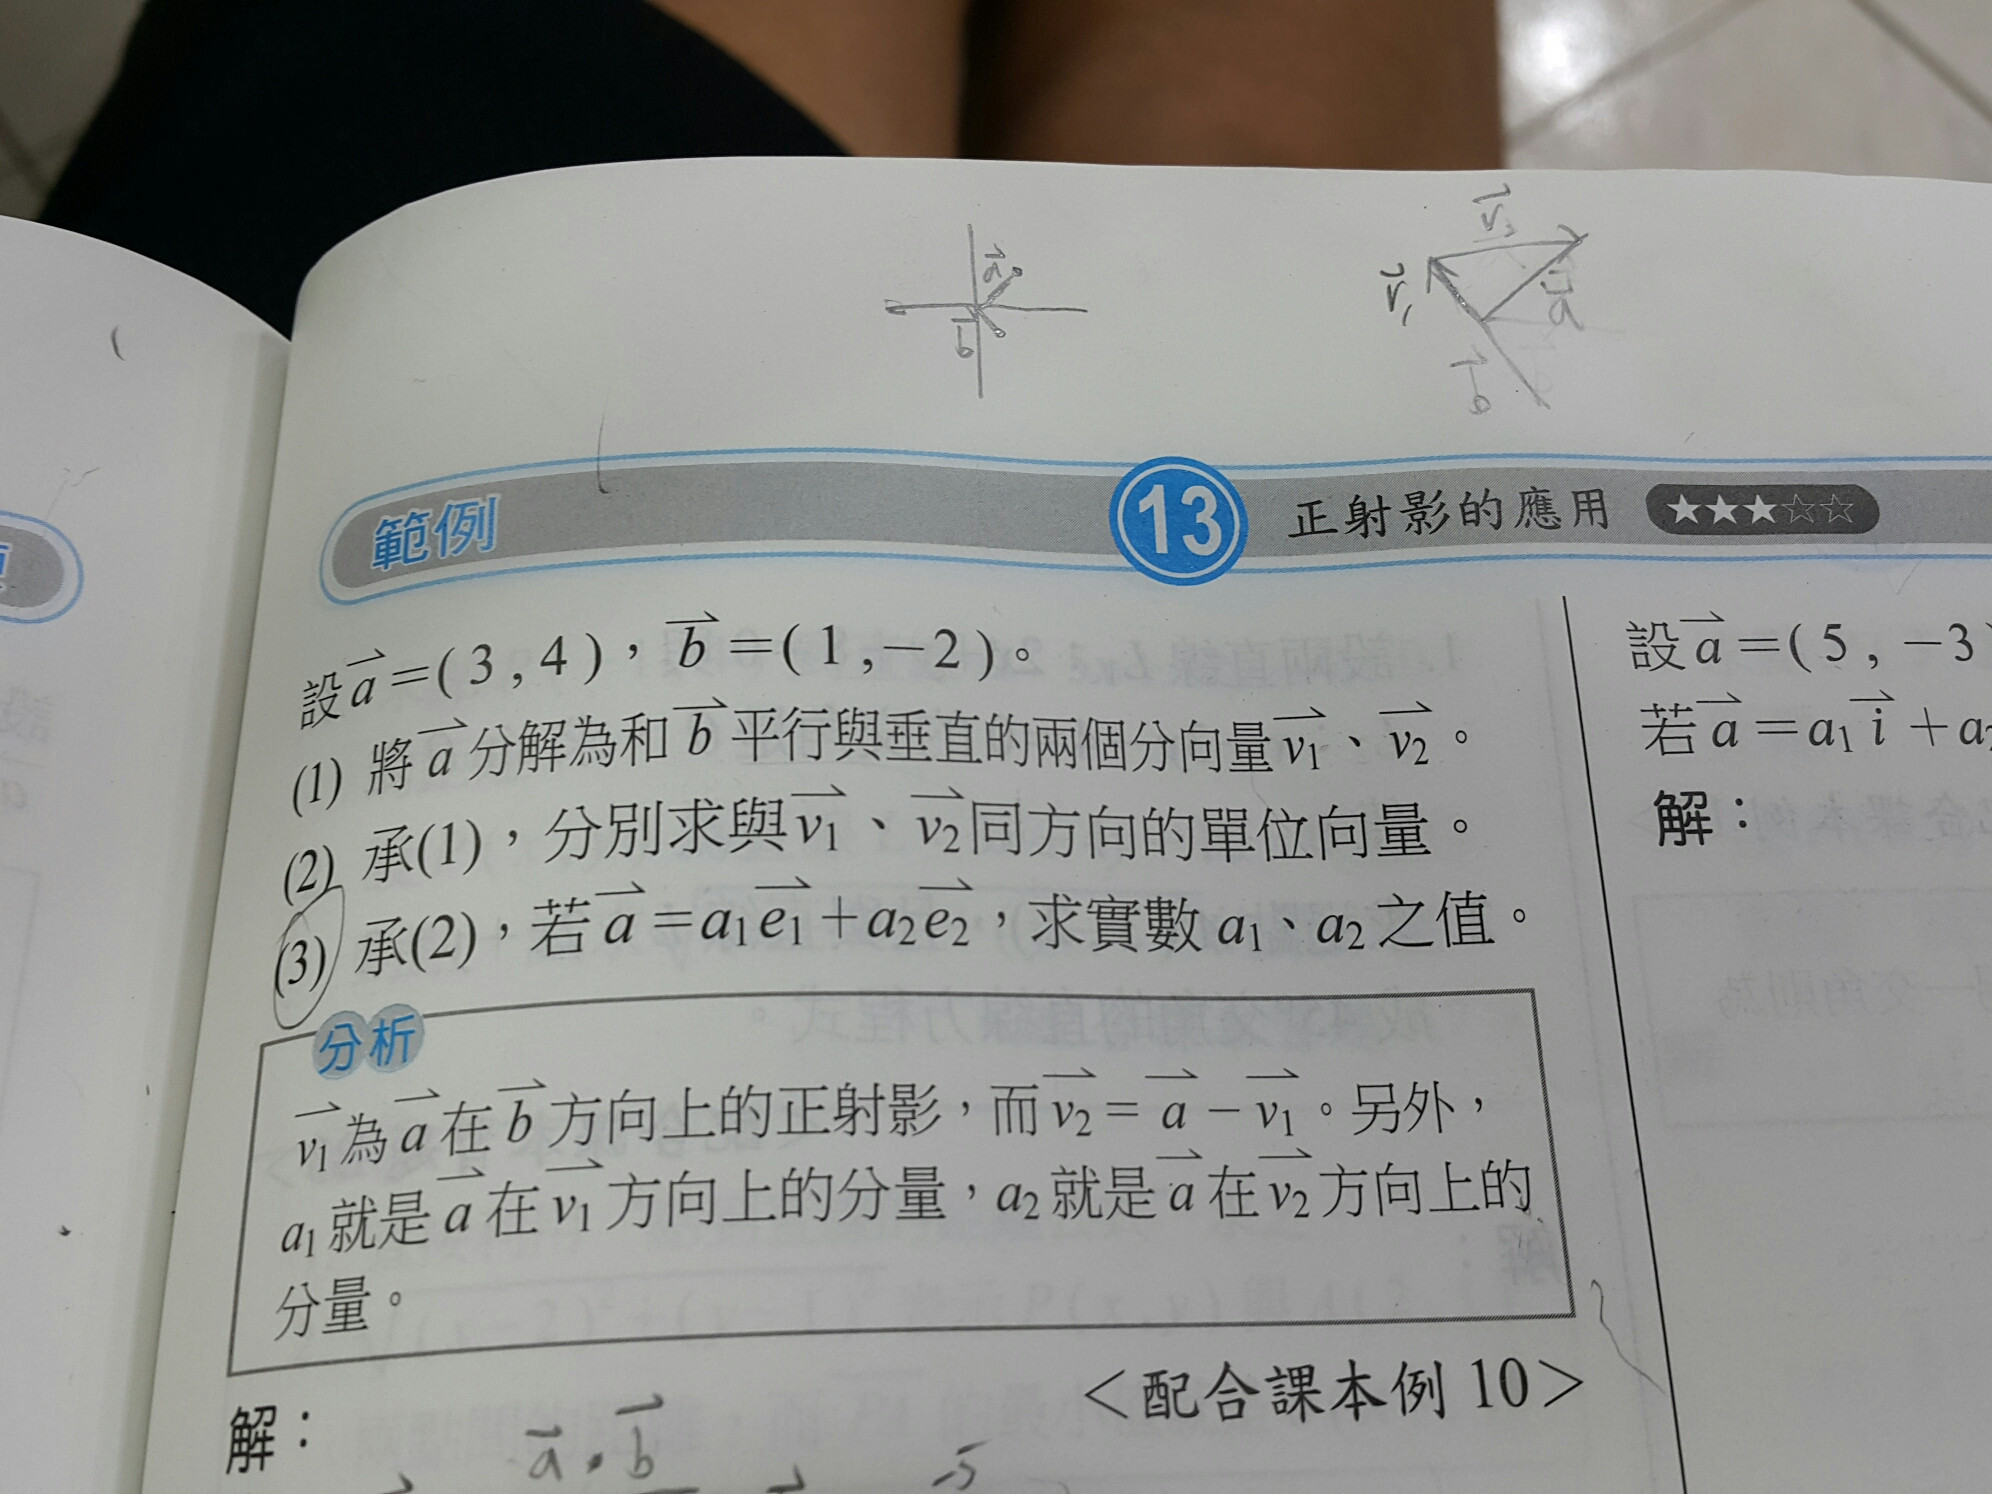 a
b
v₁
a
b
範例 13 正射影的應用 ★★★☆☆
設 a⃗ =(3,4),b⃗ =(1,-2)。
(1) 將 a⃗ 分解為和 b⃗ 平行與垂直的兩個分向量 v₁⃗、v₂⃗。
(2) 承(1),分別求與 v₁⃗、v₂⃗ 同方向的單位向量。
(3) 承(2),若 a⃗ =a₁e₁⃗ +a₂e₂⃗,求實數 a₁、a₂ 之值。
分析
v₁⃗ 為 a⃗ 在 b⃗ 方向上的正射影,而 v₂⃗ = a⃗ - v₁⃗。另外,
a₁ 就是 a⃗ 在 v₁⃗ 方向上的分量,a₂ 就是 a⃗ 在 v₂⃗ 方向上的
分量。
<配合課本例 10>
解:
a⃗ · b⃗ -5
設 a⃗ =(5,-3
若 a⃗ =a₁ i⃗ +a₂
解: